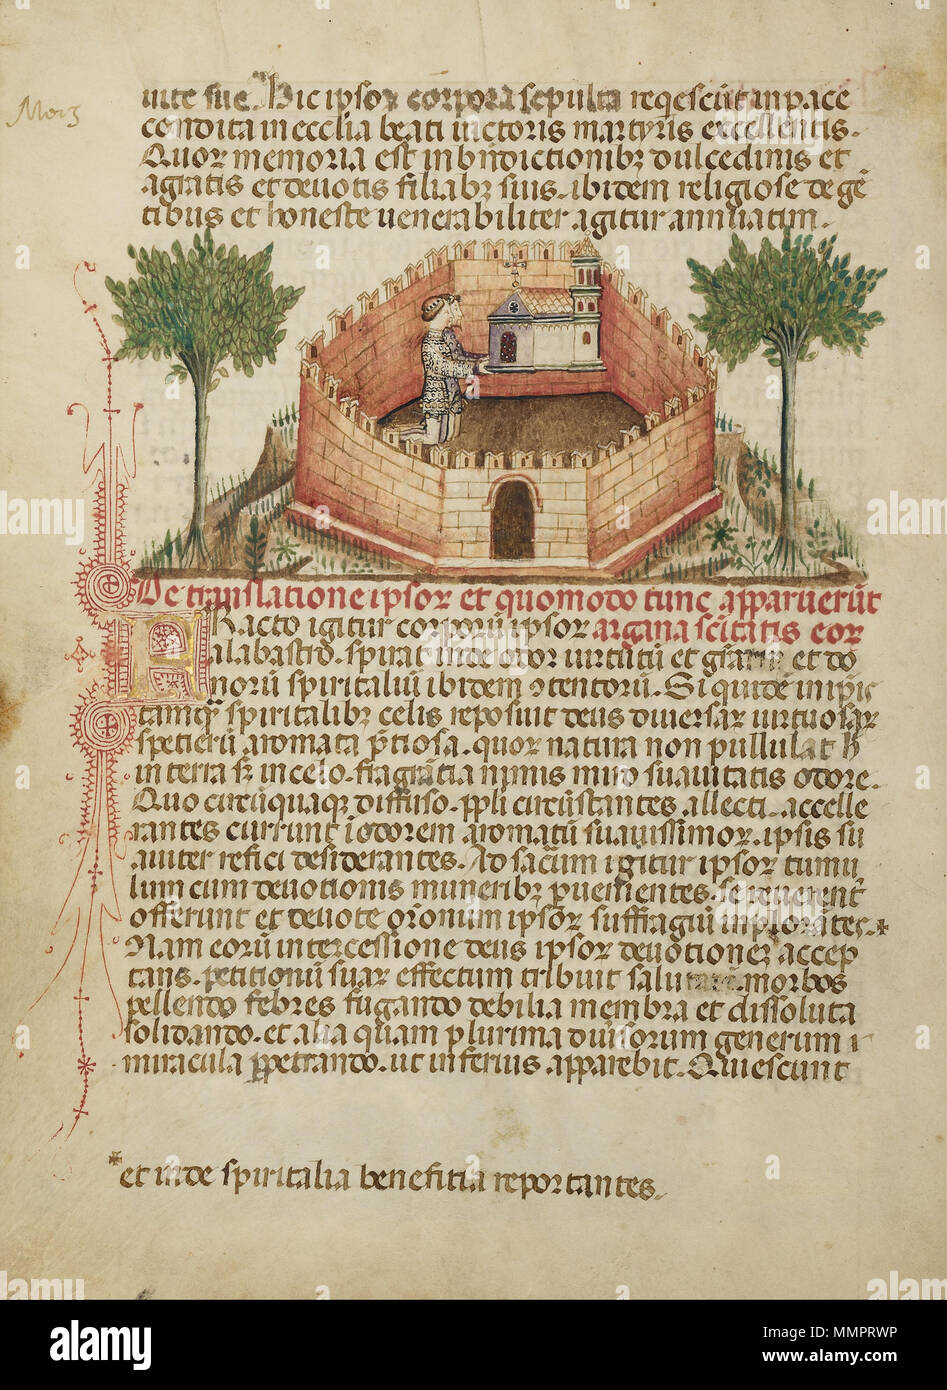 Mors
uite sue. Hic ipsoꝝ corpora sepulta reqescūt in pace
condita in ecclīa beati uictoris martyris excellentis.
Quoꝝ memoria est in bn̄dictionibꝫ dulcedinis et
a gratis et deuotis filiabꝫ suis. ibidem religiose degē
tibus et honeste uenerabiliter agitur annuatim.
De translatione ipsoꝝ et quomodo tunc apparuerūt
argana sc̄itatis eoꝝ
Racto igitur corporū ipsoꝝ
alabastro. spirat inde odor uirtutū et grār̄ et do
norū spiritaliū ibidem ꝯtentorū. Si quidē in
tamqꝫ spiritalibꝫ celis reposuit deus diuersaꝝ uirtuosaꝝ
spetierū aromata p̄tiosa. quoꝝ natura non pullulat
in terra sꝫ in celo. fragrātia nimis miro suauitatis odore.
Quo circūquaqꝫ diffuso. ppli circūstantes allecti. accelle
rantes currunt ī odorem aromatū suauissimoꝝ. ipsis su
auiter refici desiderantes. Ad sacrum igitur ipsoꝝ tumu
lum cum deuotionis muneribꝫ ꝑuenientes. se reuerent̄
offerunt et deuote or̄onum ipsoꝝ suffragiū inplorātes.*
Nam eorū intercessione deus ipsoꝝ deuotionez accep
tans. petitionū suaꝝ effectum tribuit salutarē. morbos
pellendo febres fugando debilia membra et dissoluta
solidando. et alia quam plurima diuisorum generum
miracula ꝑpetrando. ut inferius apparebit. Quiescunt
*et inde spiritalia benefitia reportantes.
alamy
Image ID: MMPRWP
www.alamy.com